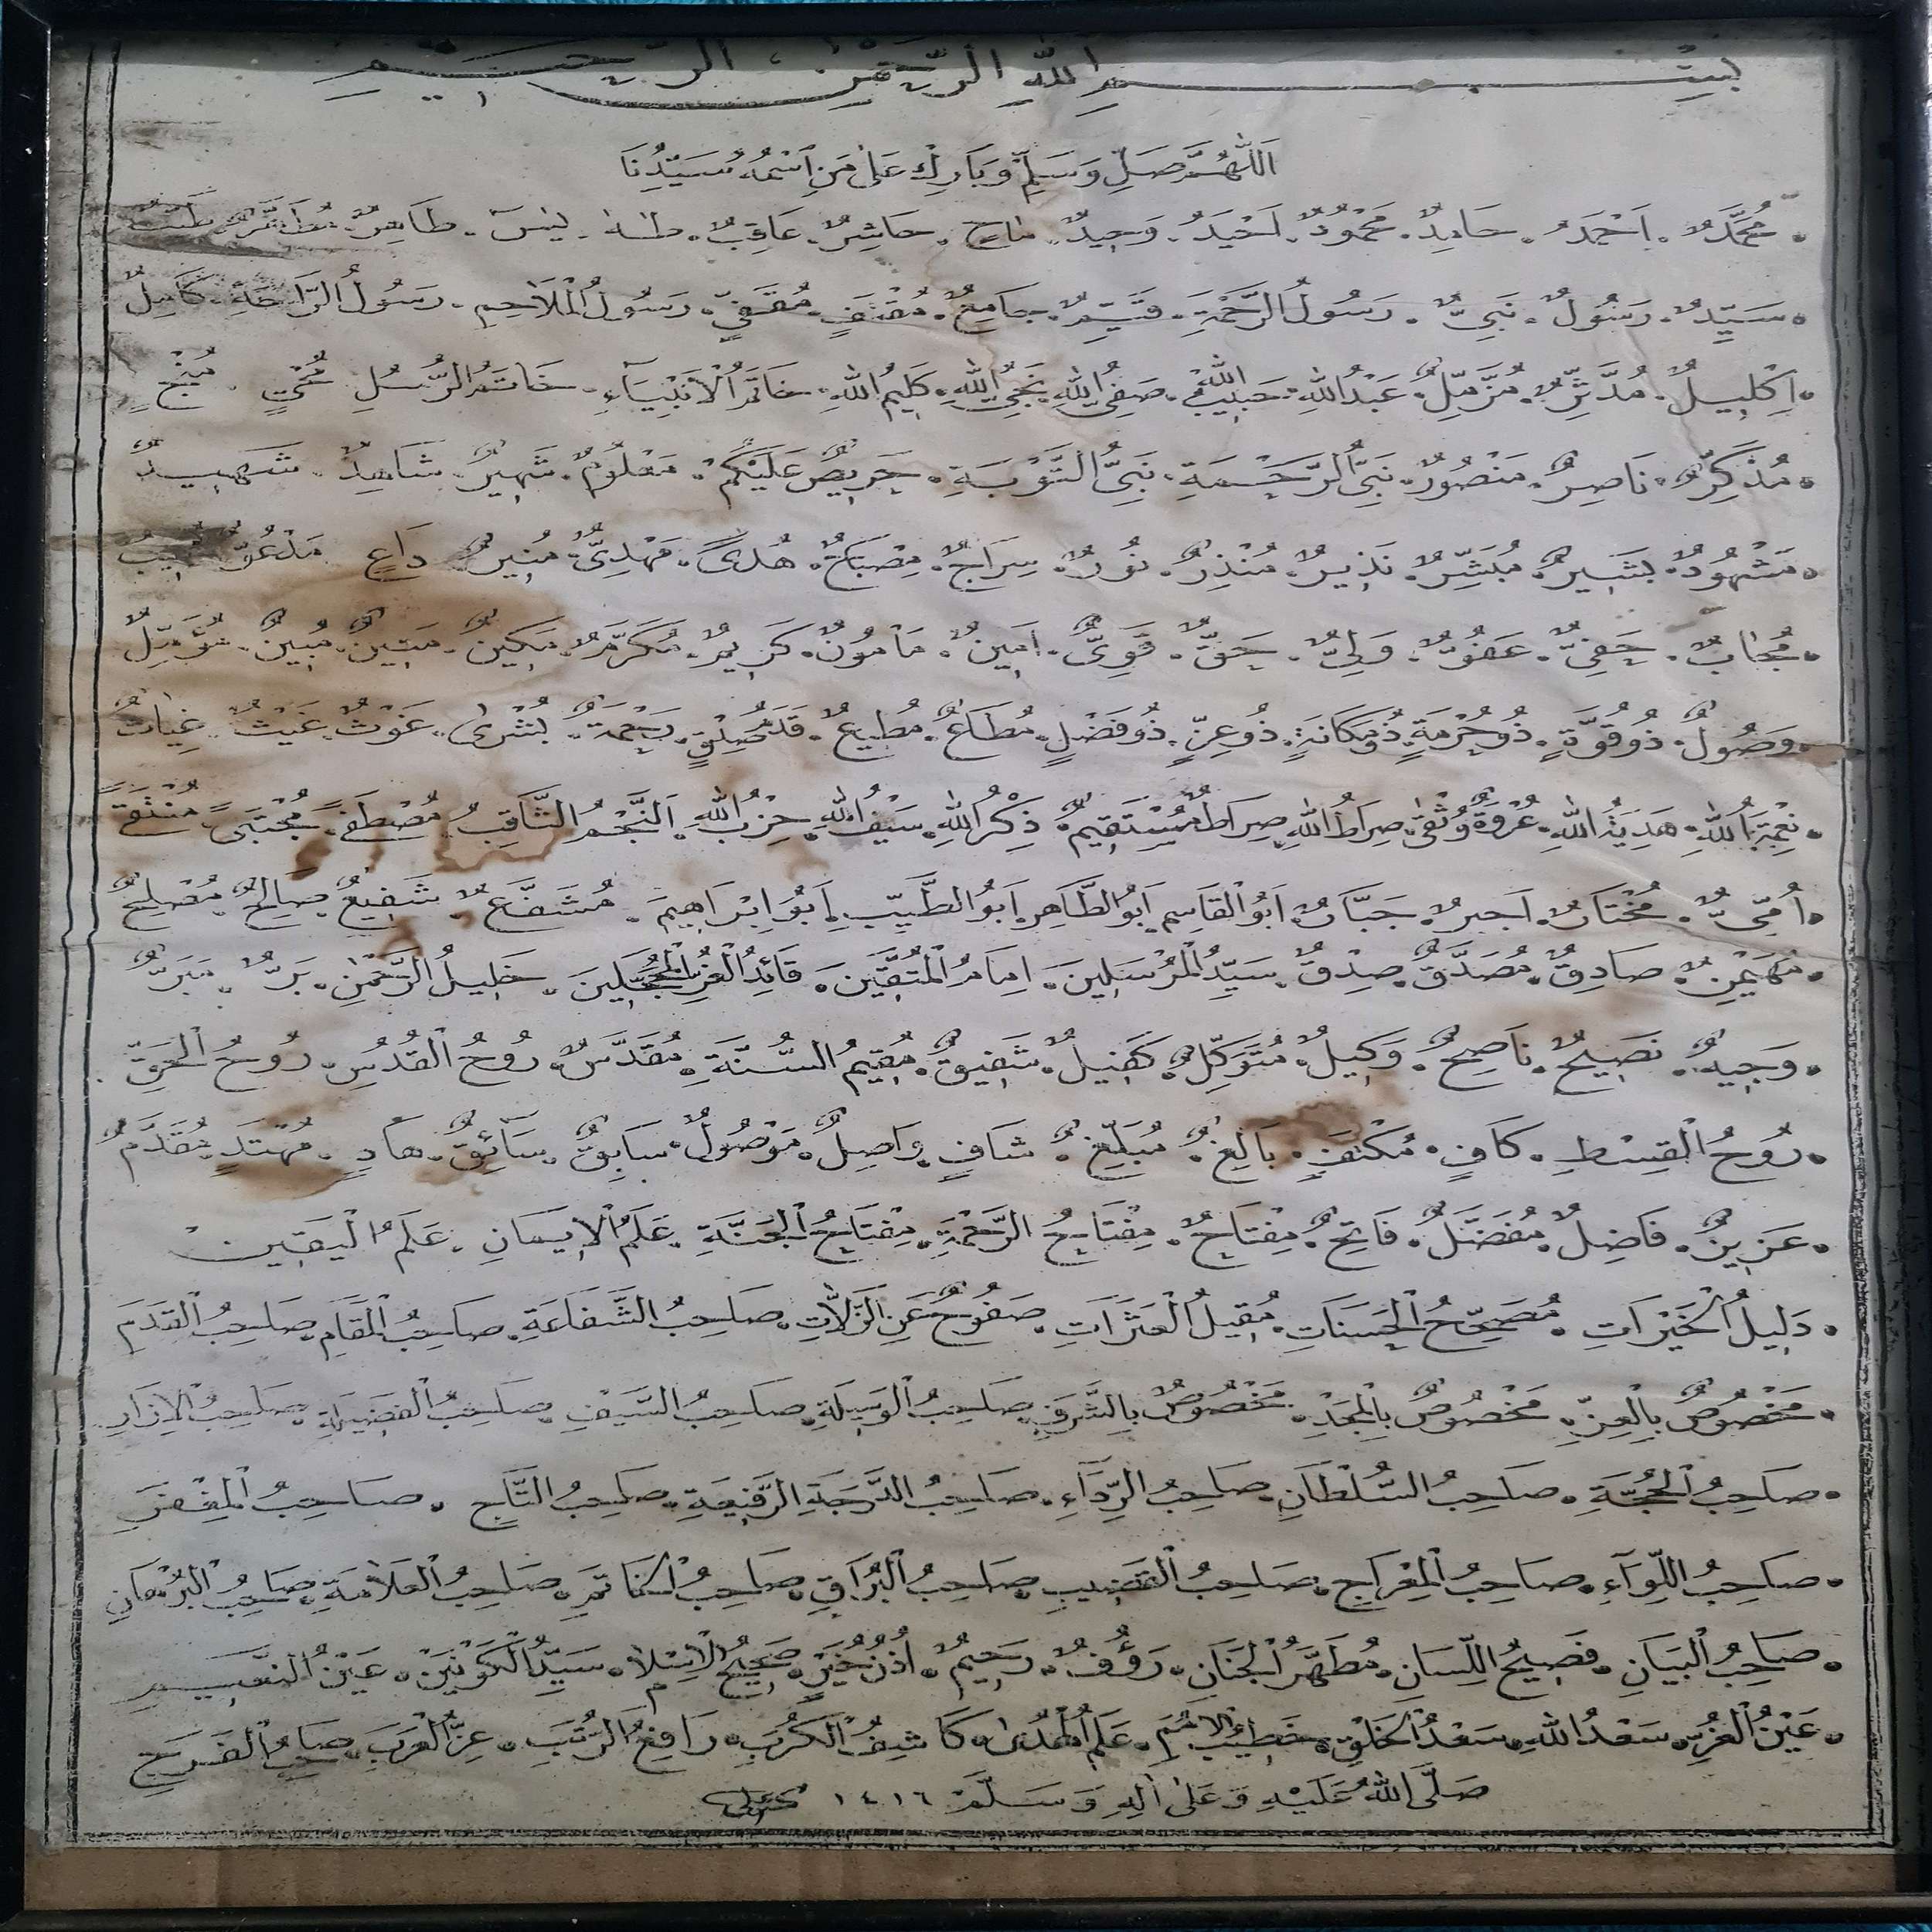 بِسْمِ اللهِ الرَّحْمٰنِ الرَّحِيْمِ
اَللّٰهُمَّ صَلِّ وَسَلِّمْ وَبَارِكْ عَلٰى مَنِ اسْمُهُ سَيِّدُنَا
مُحَمَّدٌ • اَحْمَدُ • حَامِدٌ • مَحْمُوْدٌ • اَحْيَدُ • وَحِيْدٌ • مَاحٍ • حَاشِرٌ • عَاقِبٌ • طٰهٰ • يٰسٓ • طَاهِرٌ • مُطَهَّرٌ • طَيِّبٌ
سَيِّدٌ • رَسُوْلٌ • نَبِىٌّ • رَسُوْلُ الرَّحْمَةِ • قَيِّمٌ • جَامِعٌ • مُقْتَفٍ • مُقَفّٰى • رَسُوْلُ الْمَلَاحِمِ • رَسُوْلُ الرَّاحَةِ • كَامِلٌ
اِكْلِيْلٌ • مُدَّثِّرٌ • مُزَّمِّلٌ • عَبْدُ اللهِ • حَبِيْبُ اللهِ • صَفِىُّ اللهِ • نَجِىُّ اللهِ • كَلِيْمُ اللهِ • خَاتَمُ الْاَنْبِيَآءِ • خَاتَمُ الرُّسُلِ • مُحْيٍ • مُنْجٍ
مُذَكِّرٌ • نَاصِرٌ • مَنْصُوْرٌ • نَبِىُّ الرَّحْمَةِ • نَبِىُّ التَّوْبَةِ • حَرِيْصٌ عَلَيْكُمْ • مَعْلُوْمٌ • شَهِيْرٌ • شَاهِدٌ • شَهِيْدٌ
مَشْهُوْدٌ • بَشِيْرٌ • مُبَشِّرٌ • نَذِيْرٌ • مُنْذِرٌ • نُوْرٌ • سِرَاجٌ • مِصْبَاحٌ • هُدًى • مَهْدِىٌّ • مُنِيْرٌ • دَاعٍ • مَدْعُوٌّ • مُجِيْبٌ
مُجَابٌ • حَفِىٌّ • عَفُوٌّ • وَلِىٌّ • حَقٌّ • قَوِىٌّ • اَمِيْنٌ • مَاْمُوْنٌ • كَرِيْمٌ • مُكَرَّمٌ • مَكِيْنٌ • مَتِيْنٌ • مُبِيْنٌ • مُؤَمِّلٌ
وَصُوْلٌ • ذُوْ قُوَّةٍ • ذُوْ حُرْمَةٍ • ذُوْ مَكَانَةٍ • ذُوْ عِزٍّ • ذُوْ فَضْلٍ • مُطَاعٌ • مُطِيْعٌ • قَدَمُ صِدْقٍ • رَحْمَةٌ • بُشْرٰى • غَوْثٌ • غَيْثٌ • غِيَاثٌ
نِعْمَةُ اللهِ • هَدِيَّةُ اللهِ • عُرْوَةٌ وُثْقٰى • صِرَاطُ اللهِ • صِرَاطٌ مُسْتَقِيْمٌ • ذِكْرُ اللهِ • سَيْفُ اللهِ • حِزْبُ اللهِ • اَلنَّجْمُ الثَّاقِبُ • مُصْطَفًى • مُجْتَبًى • مُنْتَقًى
اُمِّىٌّ • مُخْتَارٌ • اَجِيْرٌ • جَبَّارٌ • اَبُو الْقَاسِمِ • اَبُو الطَّاهِرِ • اَبُو الطَّيِّبِ • اَبُوْ اِبْرَاهِيْمَ • مُشَفَّعٌ • شَفِيْعٌ • صَالِحٌ • مُصْلِحٌ
مُهَيْمِنٌ • صَادِقٌ • مُصَدَّقٌ • صِدْقٌ • سَيِّدُ الْمُرْسَلِيْنَ • اِمَامُ الْمُتَّقِيْنَ • قَائِدُ الْغُرِّ الْمُحَجَّلِيْنَ • خَلِيْلُ الرَّحْمٰنِ • بَرٌّ • مَبَرٌّ
وَجِيْهٌ • نَصِيْحٌ • نَاصِحٌ • وَكِيْلٌ • مُتَوَكِّلٌ • كَفِيْلٌ • شَفِيْقٌ • مُقِيْمُ السُّنَّةِ • مُقَدَّسٌ • رُوْحُ الْقُدُسِ • رُوْحُ الْحَقِّ
رُوْحُ الْقِسْطِ • كَافٍ • مُكْتَفٍ • بَالِغٌ • مُبَلِّغٌ • شَافٍ • وَاصِلٌ • مَوْصُوْلٌ • سَابِقٌ • سَآئِقٌ • هَادٍ • مُهْتَدٍ • مُقَدَّمٌ
عَزِيْزٌ • فَاضِلٌ • مُفَضَّلٌ • فَاتِحٌ • مِفْتَاحٌ • مِفْتَاحُ الرَّحْمَةِ • مِفْتَاحُ الْجَنَّةِ • عَلَمُ الْاِيْمَانِ • عَلَمُ الْيَقِيْنِ
دَلِيْلُ الْخَيْرَاتِ • مُصَحِّحُ الْحَسَنَاتِ • مُقِيْلُ الْعَثَرَاتِ • صَفُوْحٌ عَنِ الزَّلَّاتِ • صَاحِبُ الشَّفَاعَةِ • صَاحِبُ الْمَقَامِ • صَاحِبُ الْقَدَمِ
مَخْصُوْصٌ بِالْعِزِّ • مَخْصُوْصٌ بِالْمَجْدِ • مَخْصُوْصٌ بِالشَّرَفِ • صَاحِبُ الْوَسِيْلَةِ • صَاحِبُ السَّيْفِ • صَاحِبُ الْفَضِيْلَةِ • صَاحِبُ الْاِزَارِ
صَاحِبُ الْحُجَّةِ • صَاحِبُ السُّلْطَانِ • صَاحِبُ الرِّدَآءِ • صَاحِبُ الدَّرَجَةِ الرَّفِيْعَةِ • صَاحِبُ التَّاجِ • صَاحِبُ الْمِغْفَرِ
صَاحِبُ اللِّوَآءِ • صَاحِبُ الْمِعْرَاجِ • صَاحِبُ الْقَضِيْبِ • صَاحِبُ الْبُرَاقِ • صَاحِبُ الْخَاتَمِ • صَاحِبُ الْعَلَامَةِ • صَاحِبُ الْبُرْهَانِ
صَاحِبُ الْبَيَانِ • فَصِيْحُ اللِّسَانِ • مُطَهَّرُ الْجَنَانِ • رَؤُفٌ • رَحِيْمٌ • اُذُنُ خَيْرٍ • صَحِيْحُ الْاِسْلَامِ • سَيِّدُ الْكَوْنَيْنِ • عَيْنُ النَّعِيْمِ
عَيْنُ الْغُرِّ • سَعْدُ اللهِ • سَعْدُ الْخَلْقِ • خَطِيْبُ الْاُمَمِ • عَلَمُ الْهُدٰى • كَاشِفُ الْكُرَبِ • رَافِعُ الرُّتَبِ • عِزُّ الْعَرَبِ • صَاحِبُ الْفَرَجِ
صَلَّى اللهُ عَلَيْهِ وَعَلٰى اٰلِهِ وَسَلَّمَ ١٤١٦